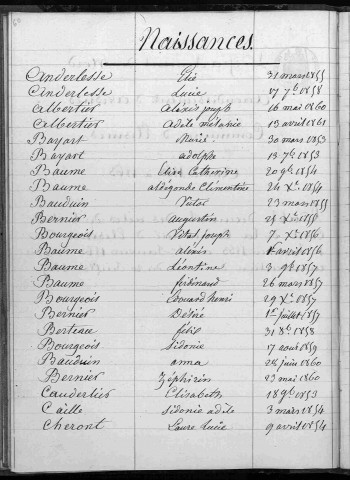 Naissances.
Anderlesse Elié 31 mars 1855
Anderlesse Lucie 17 7e 1858
Albertier Alexis joseph 16 mai 1860
Albertier Adèle mélanie 13 avril 1861
Bayart Marie 30 mars 1853
Bayart adolphe 13 7e 1853
Baume Elise Catherine 20 9e 1854
Baume aldégonde Clémentine 24 Xe 1854
Bauduin Vital 23 mars 1855
Bernier Augustin 1855
Bourgeois Vital joseph 7 Xe 1856
Baume alexis 1er avril 1856
Baume Léontine 3 9e 1857
Baume ferdinand 26 mars 1857
Bourgeois Edouard henri 29 Xe 1857
Bernier Désiré 1er juillet 1857
Berteau félix 31 8e 1858
Bourgeois Sidonie 17 aout 1859
Bauduin anna 28 juin 1860
Bernier Zéphirin 23 mai 1860
Caudertier Elisabeth 18 9e 1853
Caille Sidonie adèle 3 mars 1854
Cheront Laure Lucie 9 avril 1854